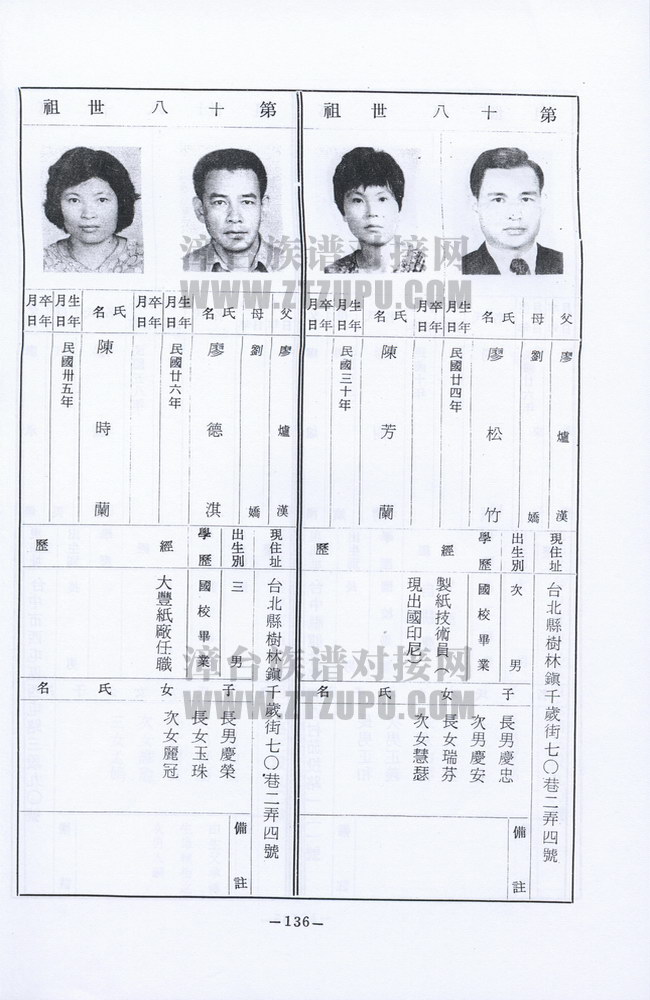 第十八世祖
父 廖爐漢
母 劉嬌
氏名 廖松竹
生年月日 民國廿四年
卒年月日
氏名 陳芳蘭
生年月日 民國三十年
卒年月日
現住址 台北縣樹林鎮千歲街七〇巷二弄四號
出生別 次男
學歷 國校畢業
經歷 製紙技術員(現出國印尼)
子女氏名
長男慶忠
次男慶安
長女瑞芬
次女慧瑟
備註
第十八世祖
父 廖爐漢
母 劉嬌
氏名 廖德淇
生年月日 民國廿六年
卒年月日
氏名 陳時蘭
生年月日 民國卅五年
卒年月日
現住址 台北縣樹林鎮千歲街七〇巷二弄四號
出生別 三男
學歷 國校畢業
經歷 大豐紙廠任職
子女氏名
長男慶榮
長女玉珠
次女麗冠
備註
漳台族谱对接网
WWW.ZTZUPU.COM
漳台族谱对接网
WWW.ZTZUPU.COM
—136—